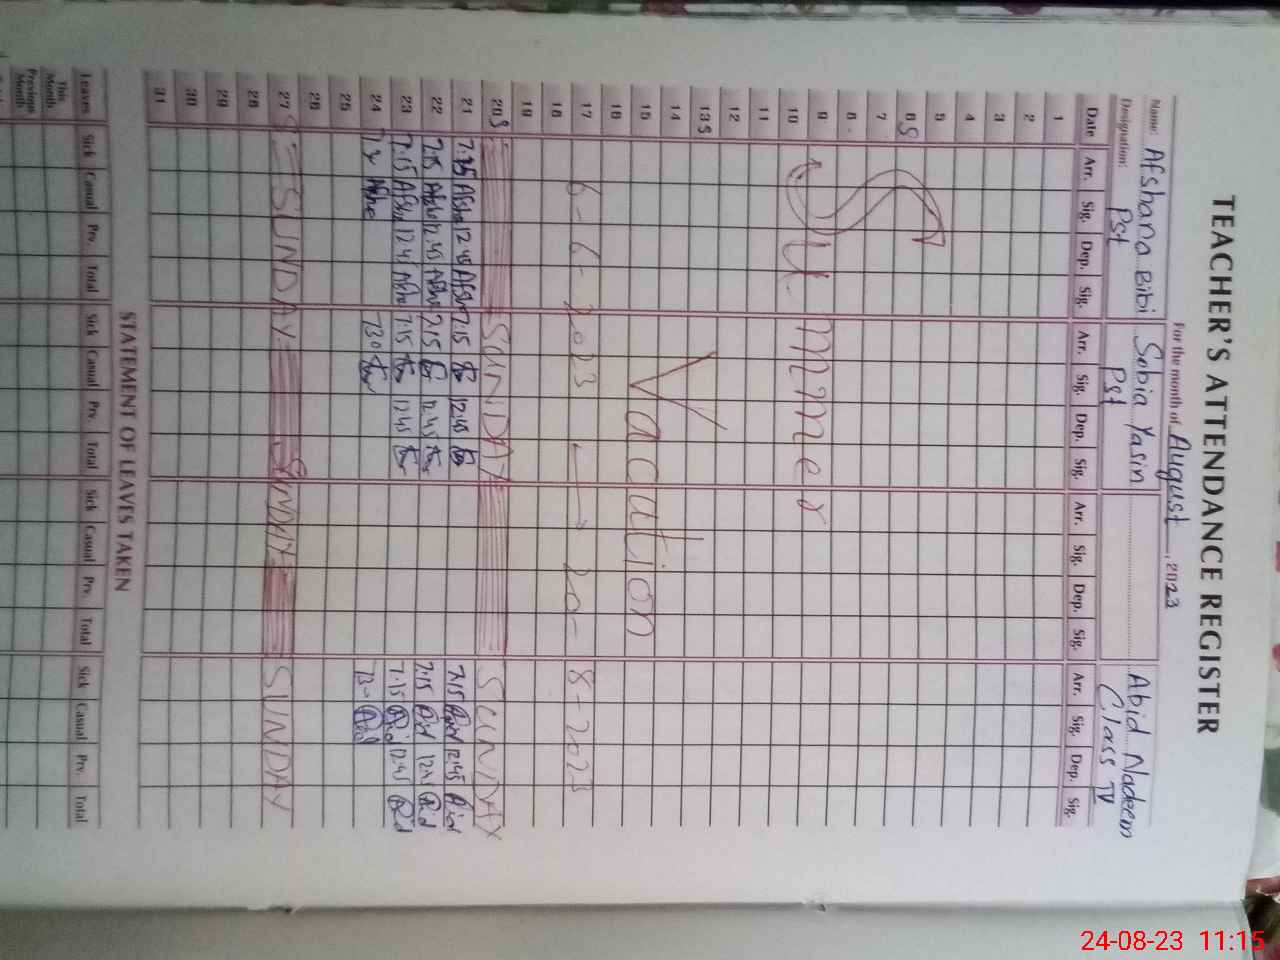 TEACHER'S ATTENDANCE REGISTER
For the month of August, 2023
Name: Afshana Bibi Sobia Yasin Abid Nadeem
Designation: Pst Pst Class IV
Date Arr. Sig. Dep. Sig. Arr. Sig. Dep. Sig. Arr. Sig. Dep. Sig. Arr. Sig. Dep. Sig.
1
2
3
4
5
6 S
7
8
9
10 Summer
11
12
13 S
14
15 Vacation
16
17 6-6-2023 20-8-2023
18
19
20 S SUNDAY SUNDAY
21 7.15 12.45 7.15 12.45 7.15 12.45
22 7.15 12.45 7.15 12.45 7.15 12.45
23 7.15 12.45 7.15 12.45 7.15 12.45
24 730 730
25
26
27 S SUNDAY SUNDAY SUNDAY
28
29
30
31
STATEMENT OF LEAVES TAKEN
Leaves Sick Casual Prv. Total Sick Casual Prv. Total Sick Casual Prv. Total Sick Casual Prv. Total
This Month
Previous Month
24-08-23 11:15